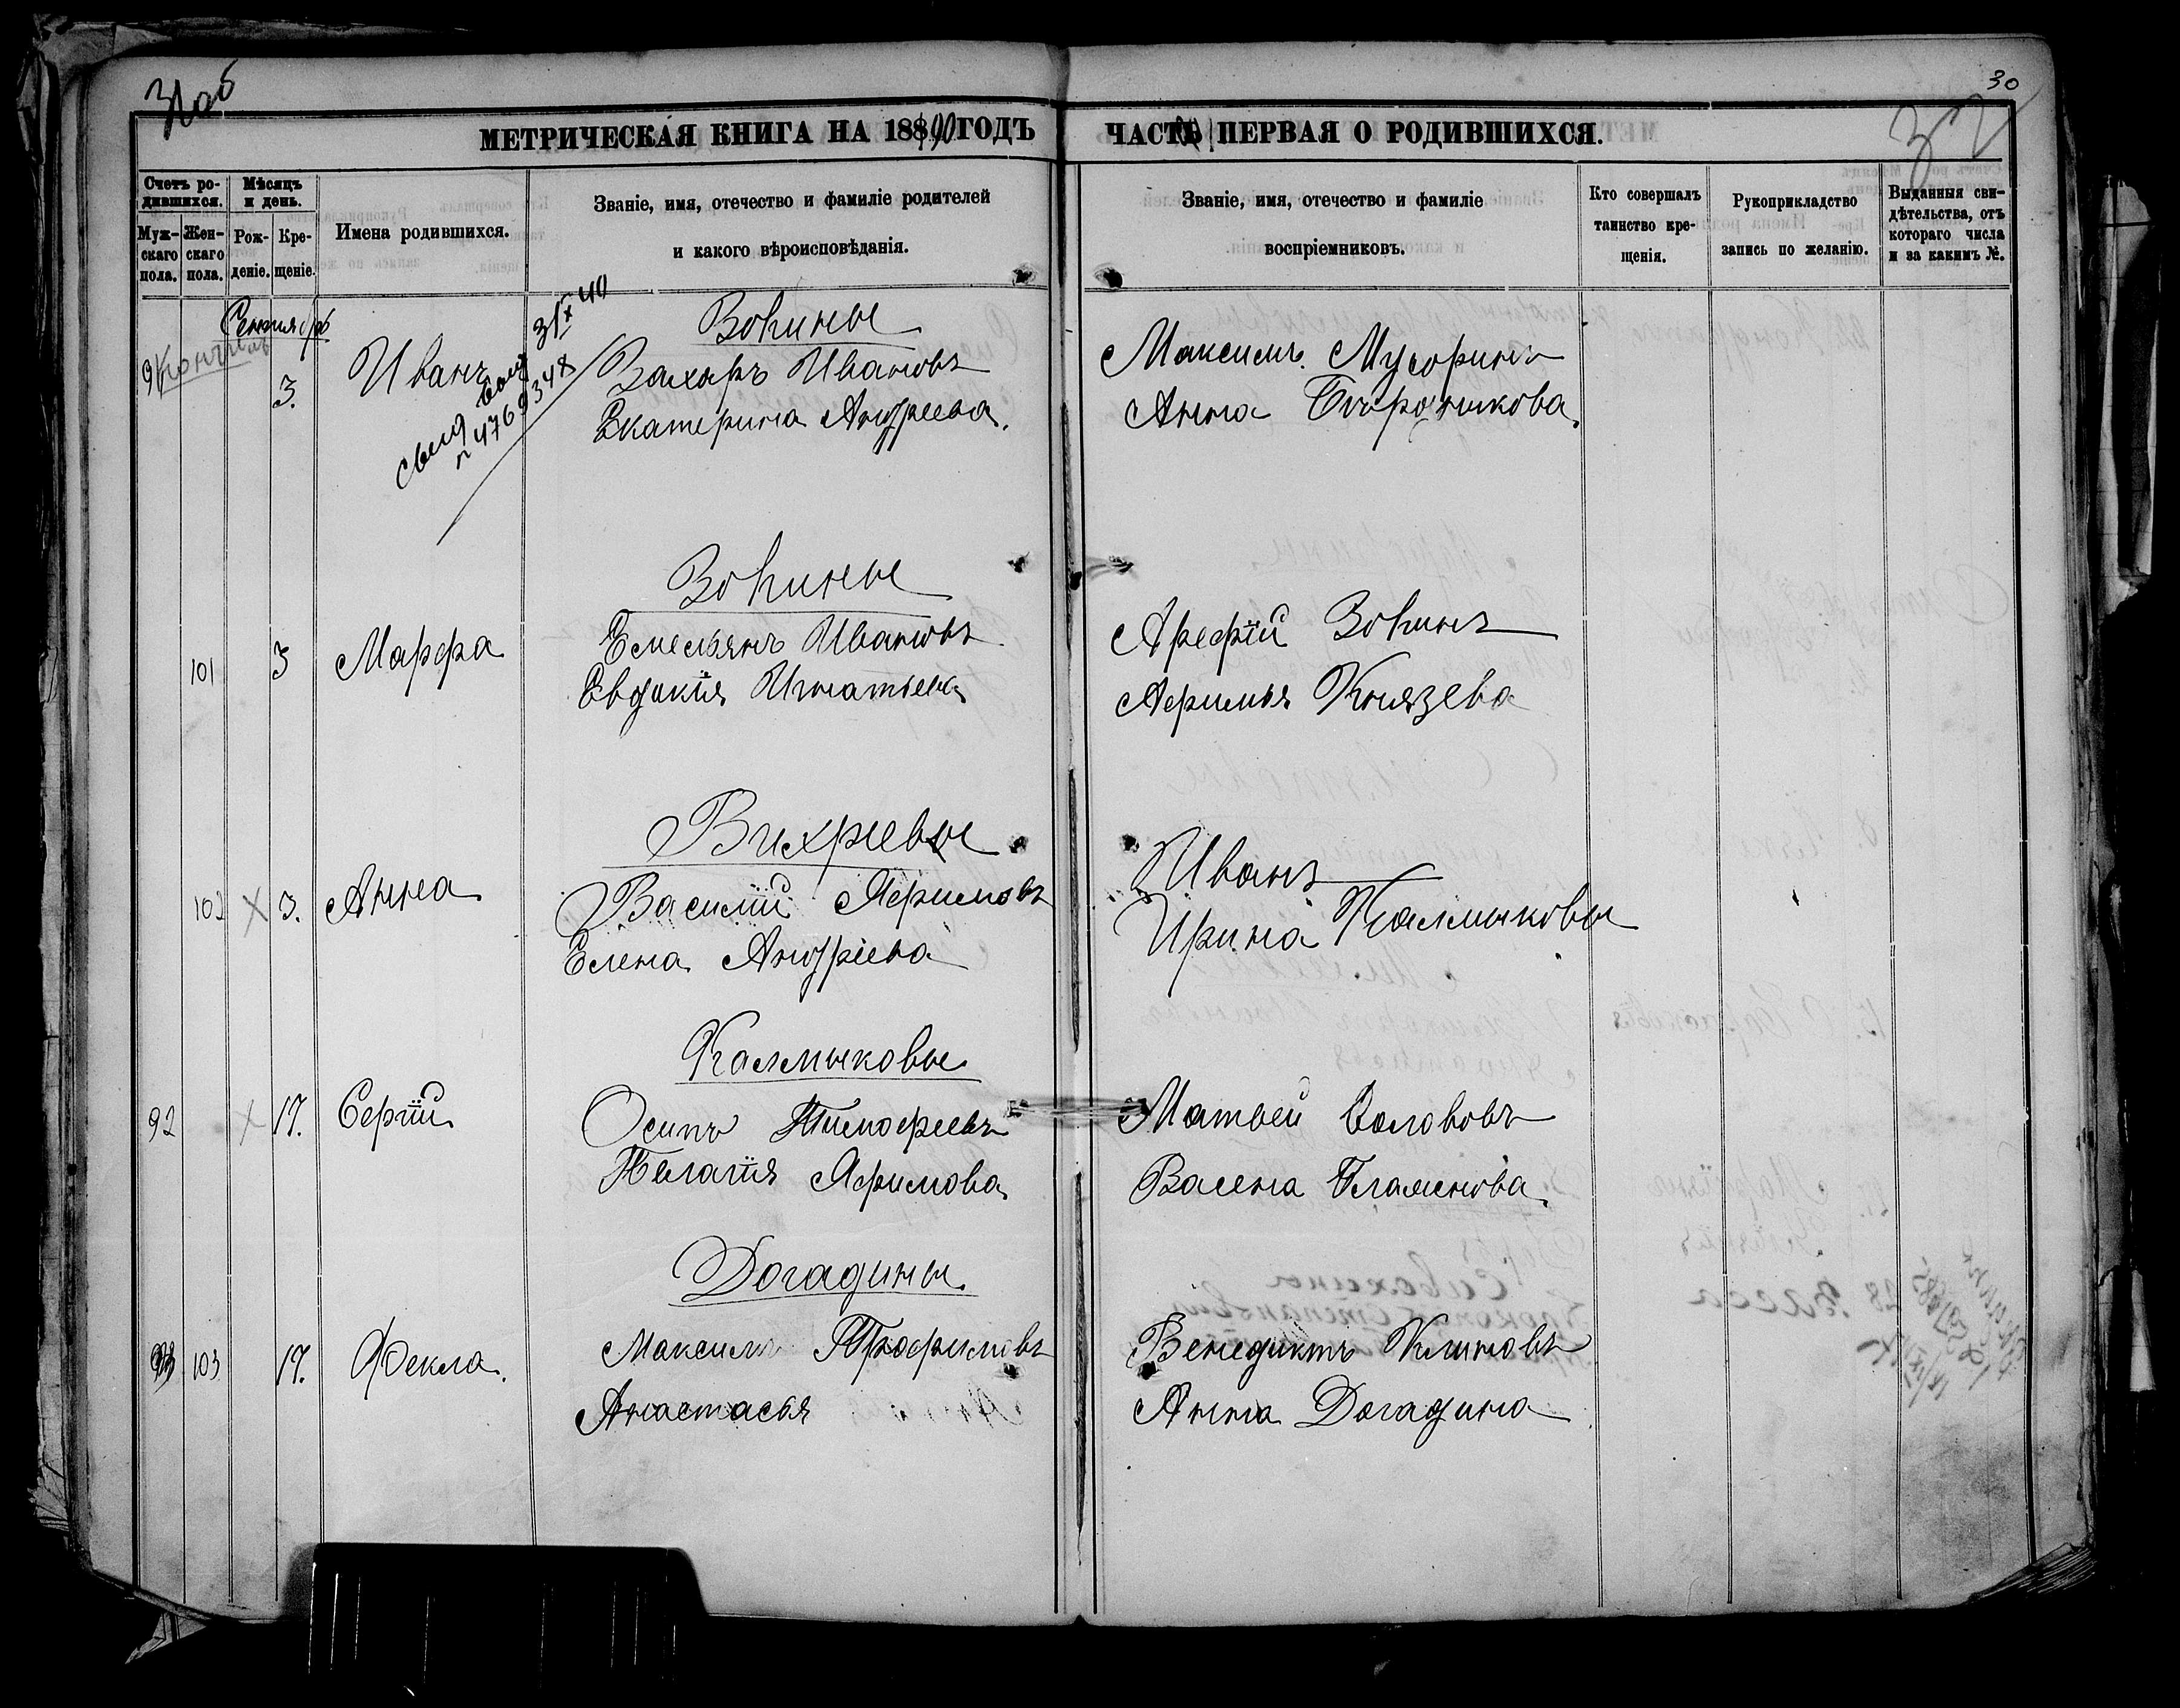 31об
30
32
МЕТРИЧЕСКАЯ КНИГА НА 1890 ГОДЪ
ЧАСТЬ ПЕРВАЯ О РОДИВШИХСЯ.
Счетъ ро-
дившихся.
Муж-
скаго
пола.
Жен-
скаго
пола.
Мѣсяцъ
и день.
Рож-
деніе.
Кре-
щеніе.
Имена родившихся.
Званіе, имя, отечество и фамиліе родителей
и какого вѣроисповѣданія.
Званіе, имя, отечество и фамиліе
воспріемниковъ.
Кто совершалъ
таинство кре-
щенія.
Рукоприкладство
запись по желанію.
Выданныя сви-
дѣтельства, отъ
котораго числа
и за какимъ №.
Сентябрь
3.
Иванъ
Зокины
Захаръ Ивановъ
Екатерина Андреева.
Максимъ Мусоринъ
Анна
101
3
Марфа
Зокины
Емельянъ Ивановъ
Евдокія Игнатьева
Арефій Зокинъ
Афимья Князева
102
3.
Анна
Вихревы
Василій Яфимовъ
Елена Андріева
Иванъ
Ирина Калмыковы
92
17.
Сергій
Калмыковы
Осипъ Тимофеевъ
Пелагія Яфимова
Матвей
103
17.
Фекла.
Догадины.
Максимъ Трофимовъ
Анастасья
Венедиктъ Климовъ
Анна Догадина